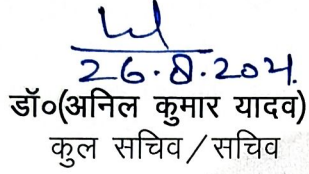 26.8.2021.
डॉ०(अनिल कुमार यादव)
कुल सचिव/सचिव